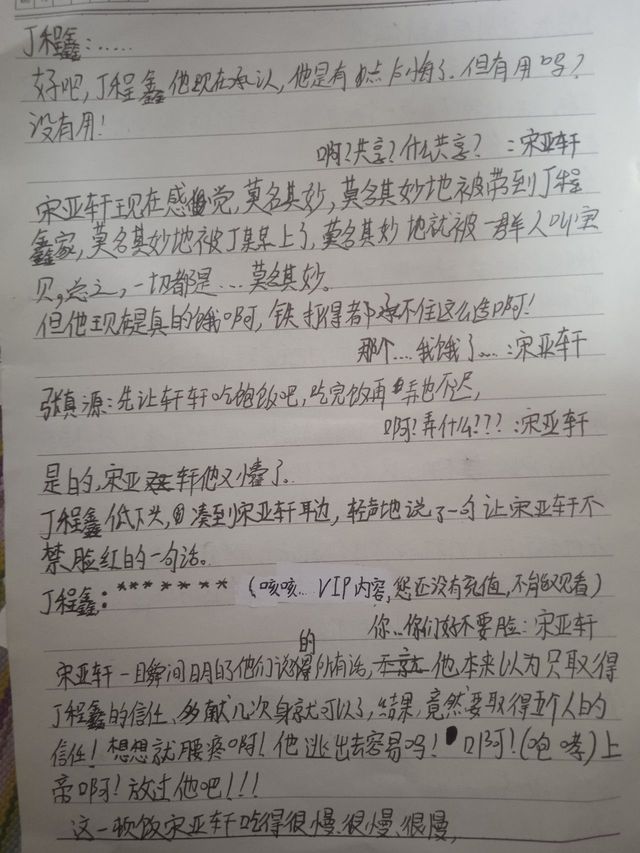 丁程鑫:.....
好吧,丁程鑫他现在承认,他是有点后悔了.但有用吗?
没有用!
啊?共享?什么共享? :宋亚轩
宋亚轩现在感觉,莫名其妙,莫名其妙地被带到丁程
鑫家,莫名其妙地被丁某某上了,莫名其妙地就被一群人叫宝
贝,总之,一切都是...莫名其妙。
但他现在是真的饿啊,铁打得都承不住这么造啊!
那个....我饿了....:宋亚轩
张真源:先让轩轩吃饱饭吧,吃完饭再弄也不迟,
啊?弄什么???:宋亚轩
是的,宋亚轩他又懵了。
丁程鑫低下头,凑到宋亚轩耳边,轻声地说了一句让宋亚轩不
禁脸红的一句话。
丁程鑫:******* (咳咳...VIP内容,您还没有充值,不能观看)
你...你们好不要脸:宋亚轩
宋亚轩一瞬间明白了他们说的所有话,他本来以为只取得
丁程鑫的信任,多献几次身就可以了,结果,竟然要取得五个人的
信任!想想就腰疼啊!他逃出去容易吗!啊!(咆哮)上
帝啊!放过他吧!!!
这一顿饭宋亚轩吃得很慢,很慢,很慢,